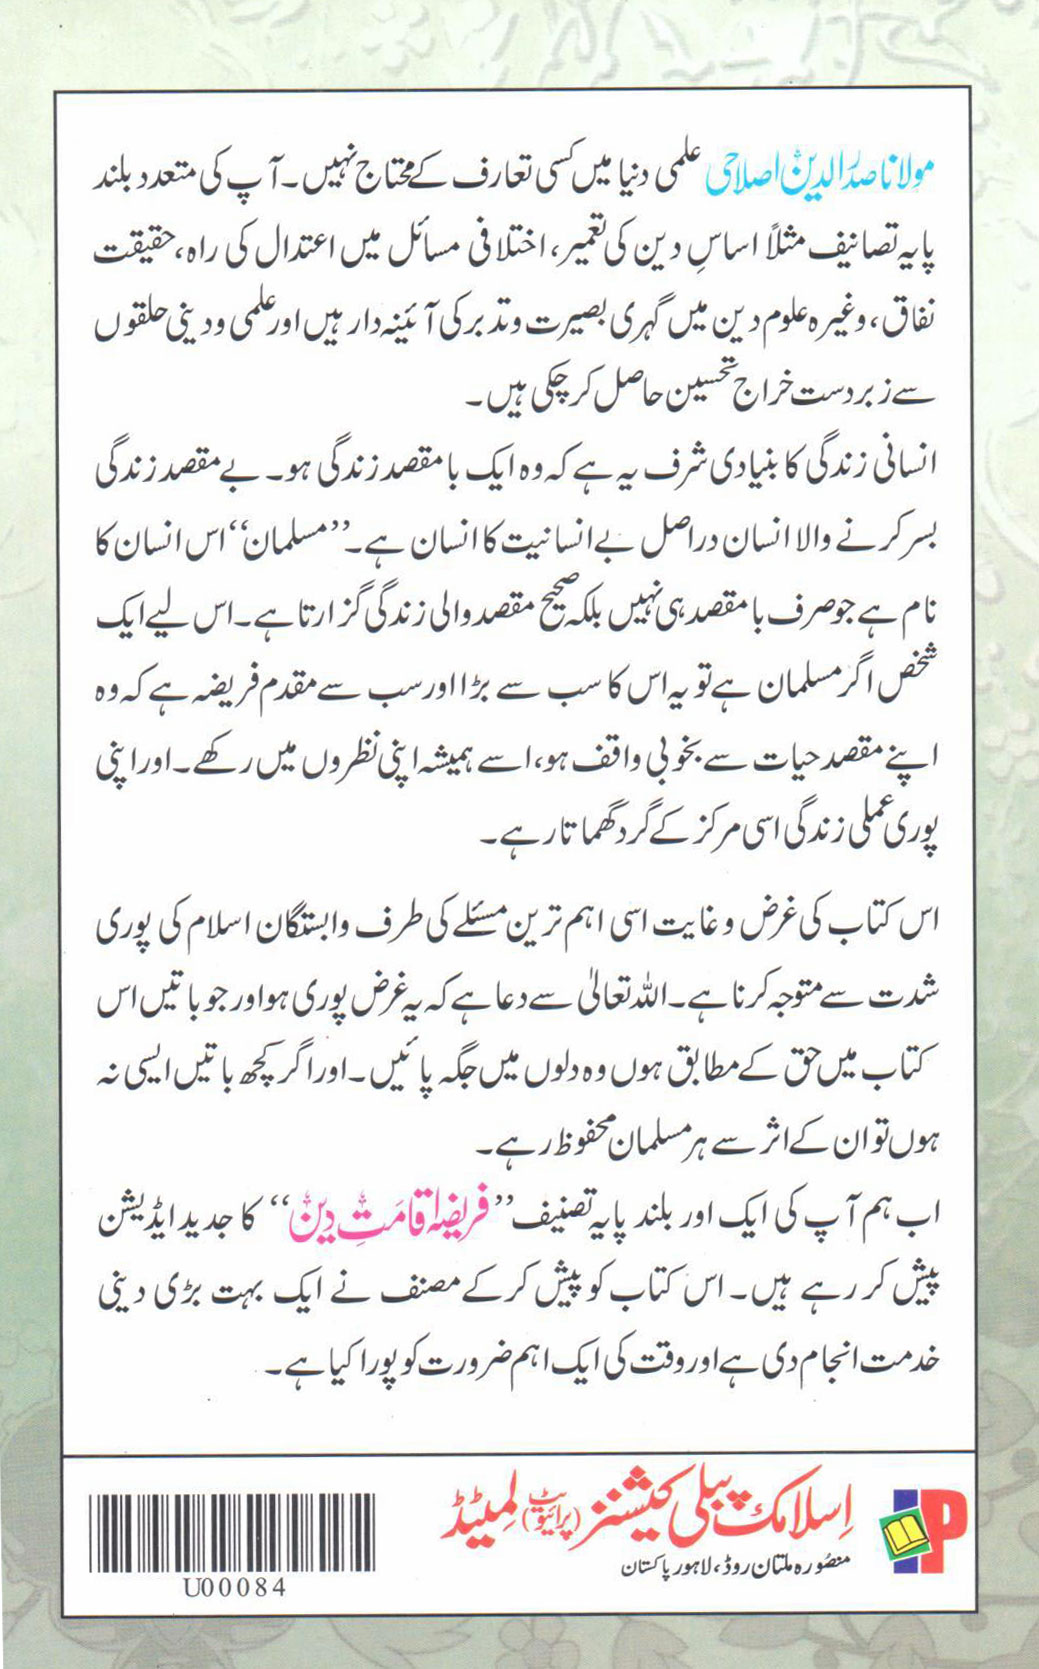 مولانا صدرالدین اصلاحی علمی دنیا میں کسی تعارف کے محتاج نہیں۔ آپ کی متعدد بلند
پایہ تصانیف مثلاً اساسِ دین کی تعمیر، اختلافی مسائل میں اعتدال کی راہ، حقیقت
نفاق، وغیرہ علوم دین میں گہری بصیرت و تدبر کی آئینہ دار ہیں اور علمی و دینی حلقوں
سے زبردست خراج تحسین حاصل کر چکی ہیں۔
انسانی زندگی کا بنیادی شرف یہ ہے کہ وہ ایک بامقصد زندگی ہو۔ بے مقصد زندگی
بسر کرنے والا انسان دراصل بے انسانیت کا انسان ہے۔ ”مسلمان“ اس انسان کا
نام ہے جو صرف بامقصد ہی نہیں بلکہ صحیح مقصد والی زندگی گزارتا ہے۔ اس لیے ایک
شخص اگر مسلمان ہے تو یہ اس کا سب سے بڑا اور سب سے مقدم فریضہ ہے کہ وہ
اپنے مقصد حیات سے بخوبی واقف ہو، اسے ہمیشہ اپنی نظروں میں رکھے۔ اور اپنی
پوری عملی زندگی اسی مرکز کے گرد گھماتا رہے۔
اس کتاب کی غرض و غایت اسی اہم ترین مسئلے کی طرف وابستگان اسلام کی پوری
شدت سے متوجہ کرنا ہے۔ اللہ تعالیٰ سے دعا ہے کہ یہ غرض پوری ہو اور جو باتیں اس
کتاب میں حق کے مطابق ہوں وہ دلوں میں جگہ پائیں۔ اور اگر کچھ باتیں ایسی نہ
ہوں تو ان کے اثر سے ہر مسلمان محفوظ رہے۔
اب ہم آپ کی ایک اور بلند پایہ تصنیف ”فریضہ اقامتِ دین“ کا جدید ایڈیشن
پیش کر رہے ہیں۔ اس کتاب کو پیش کر کے مصنف نے ایک بہت بڑی دینی
خدمت انجام دی ہے اور وقت کی ایک اہم ضرورت کو پورا کیا ہے۔
اسلامک پبلی کیشنز (پرائیویٹ) لمیٹیڈ
منصورہ ملتان روڈ، لاہور پاکستان
IP
U00084